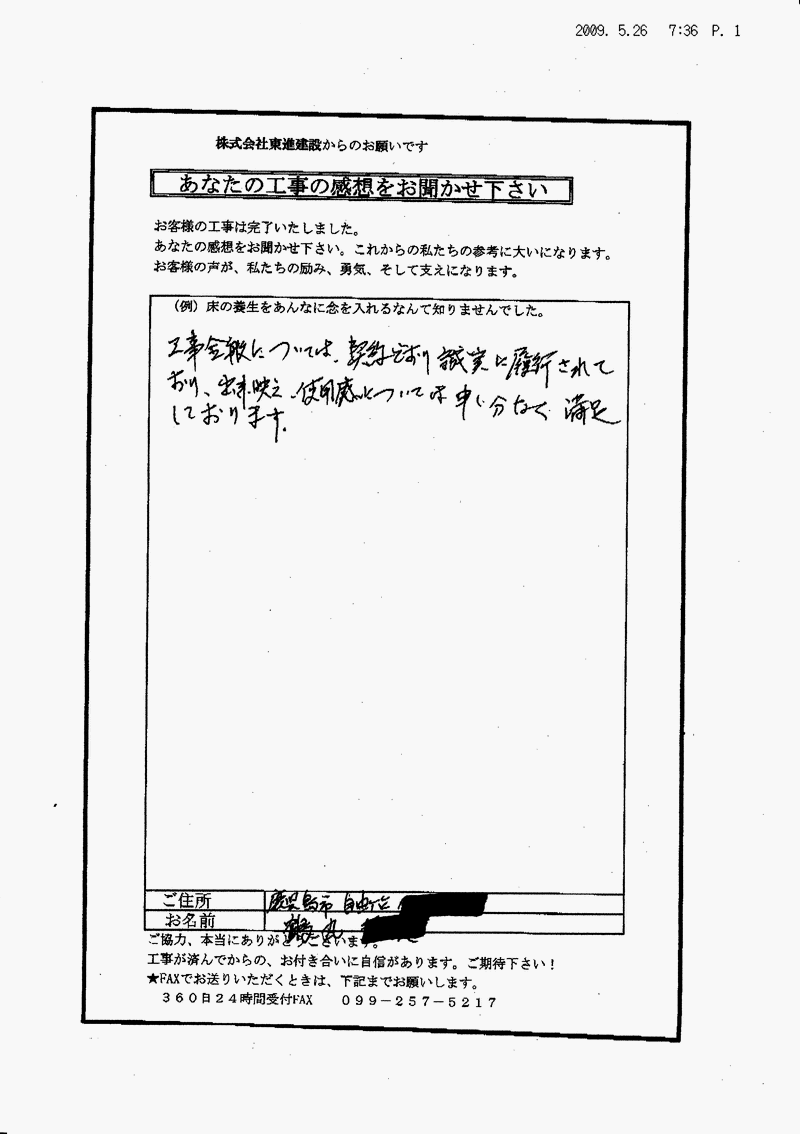 2009. 5.26 7:36 P. 1
株式会社東進建設からのお願いです
あなたの工事の感想をお聞かせ下さい
お客様の工事は完了いたしました。
あなたの感想をお聞かせ下さい。これからの私たちの参考に大いになります。
お客様の声が、私たちの励み、勇気、そして支えになります。
（例）床の養生をあんなに念を入れるなんて知りませんでした。
工事全般については、契約どおり誠実に履行されて
おり、出来映え、使用感については申し分なく満足
しております。
ご住所 鹿児島市 自由ヶ丘
お名前 鶴丸
ご協力、本当にありがとうございます。
工事が済んでからの、お付き合いに自信があります。ご期待下さい！
★FAXでお送りいただくときは、下記までお願いします。
３６０日２４時間受付FAX ０９９－２５７－５２１７